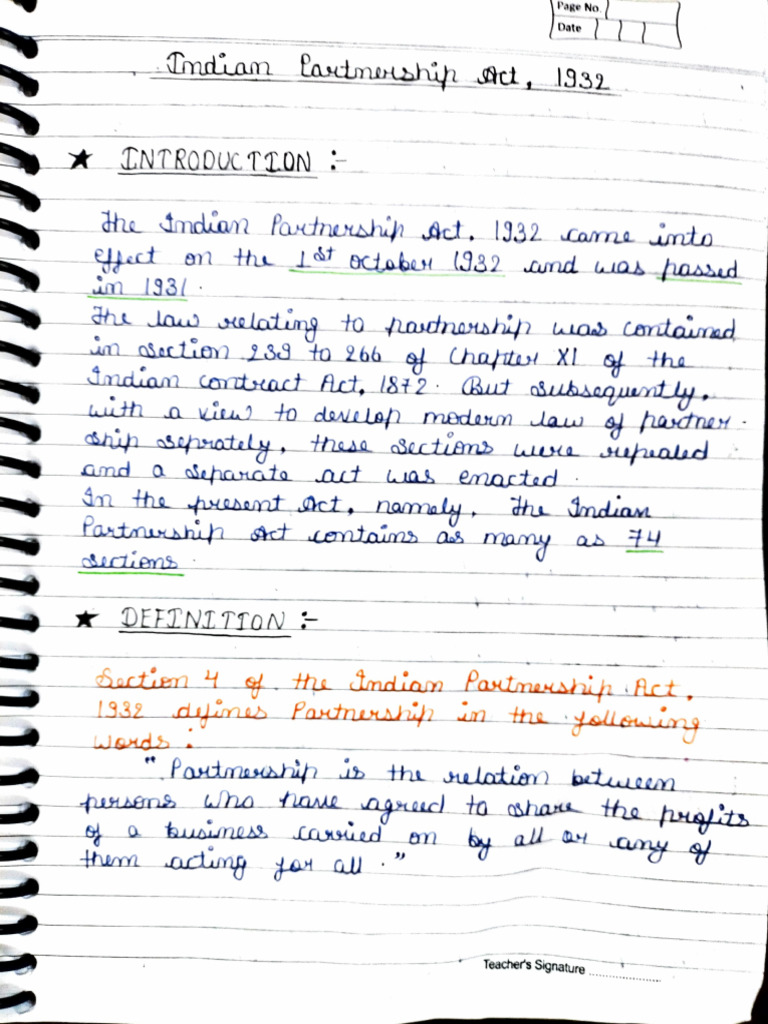 Page No.
Date
Indian Partnership Act, 1932
★ INTRODUCTION :-
The Indian Partnership Act, 1932 came into
effect on the 1st october 1932 and was passed
in 1931.
The law relating to partnership was contained
in section 239 to 266 of Chapter XI of the
Indian contract Act, 1872. But subsequently,
with a view to develop modern law of partner-
ship seprately, these sections were repealed
and a separate act was enacted.
In the present Act, namely, the Indian
Partnership Act contains as many as 74
sections.
★ DEFINITION :-
Section 4 of the Indian Partnership Act,
1932 defines Partnership in the following
words :
"Partnership is the relation between
persons who have agreed to share the profits
of a business carried on by all or any of
them acting for all."
Teacher's Signature ....................